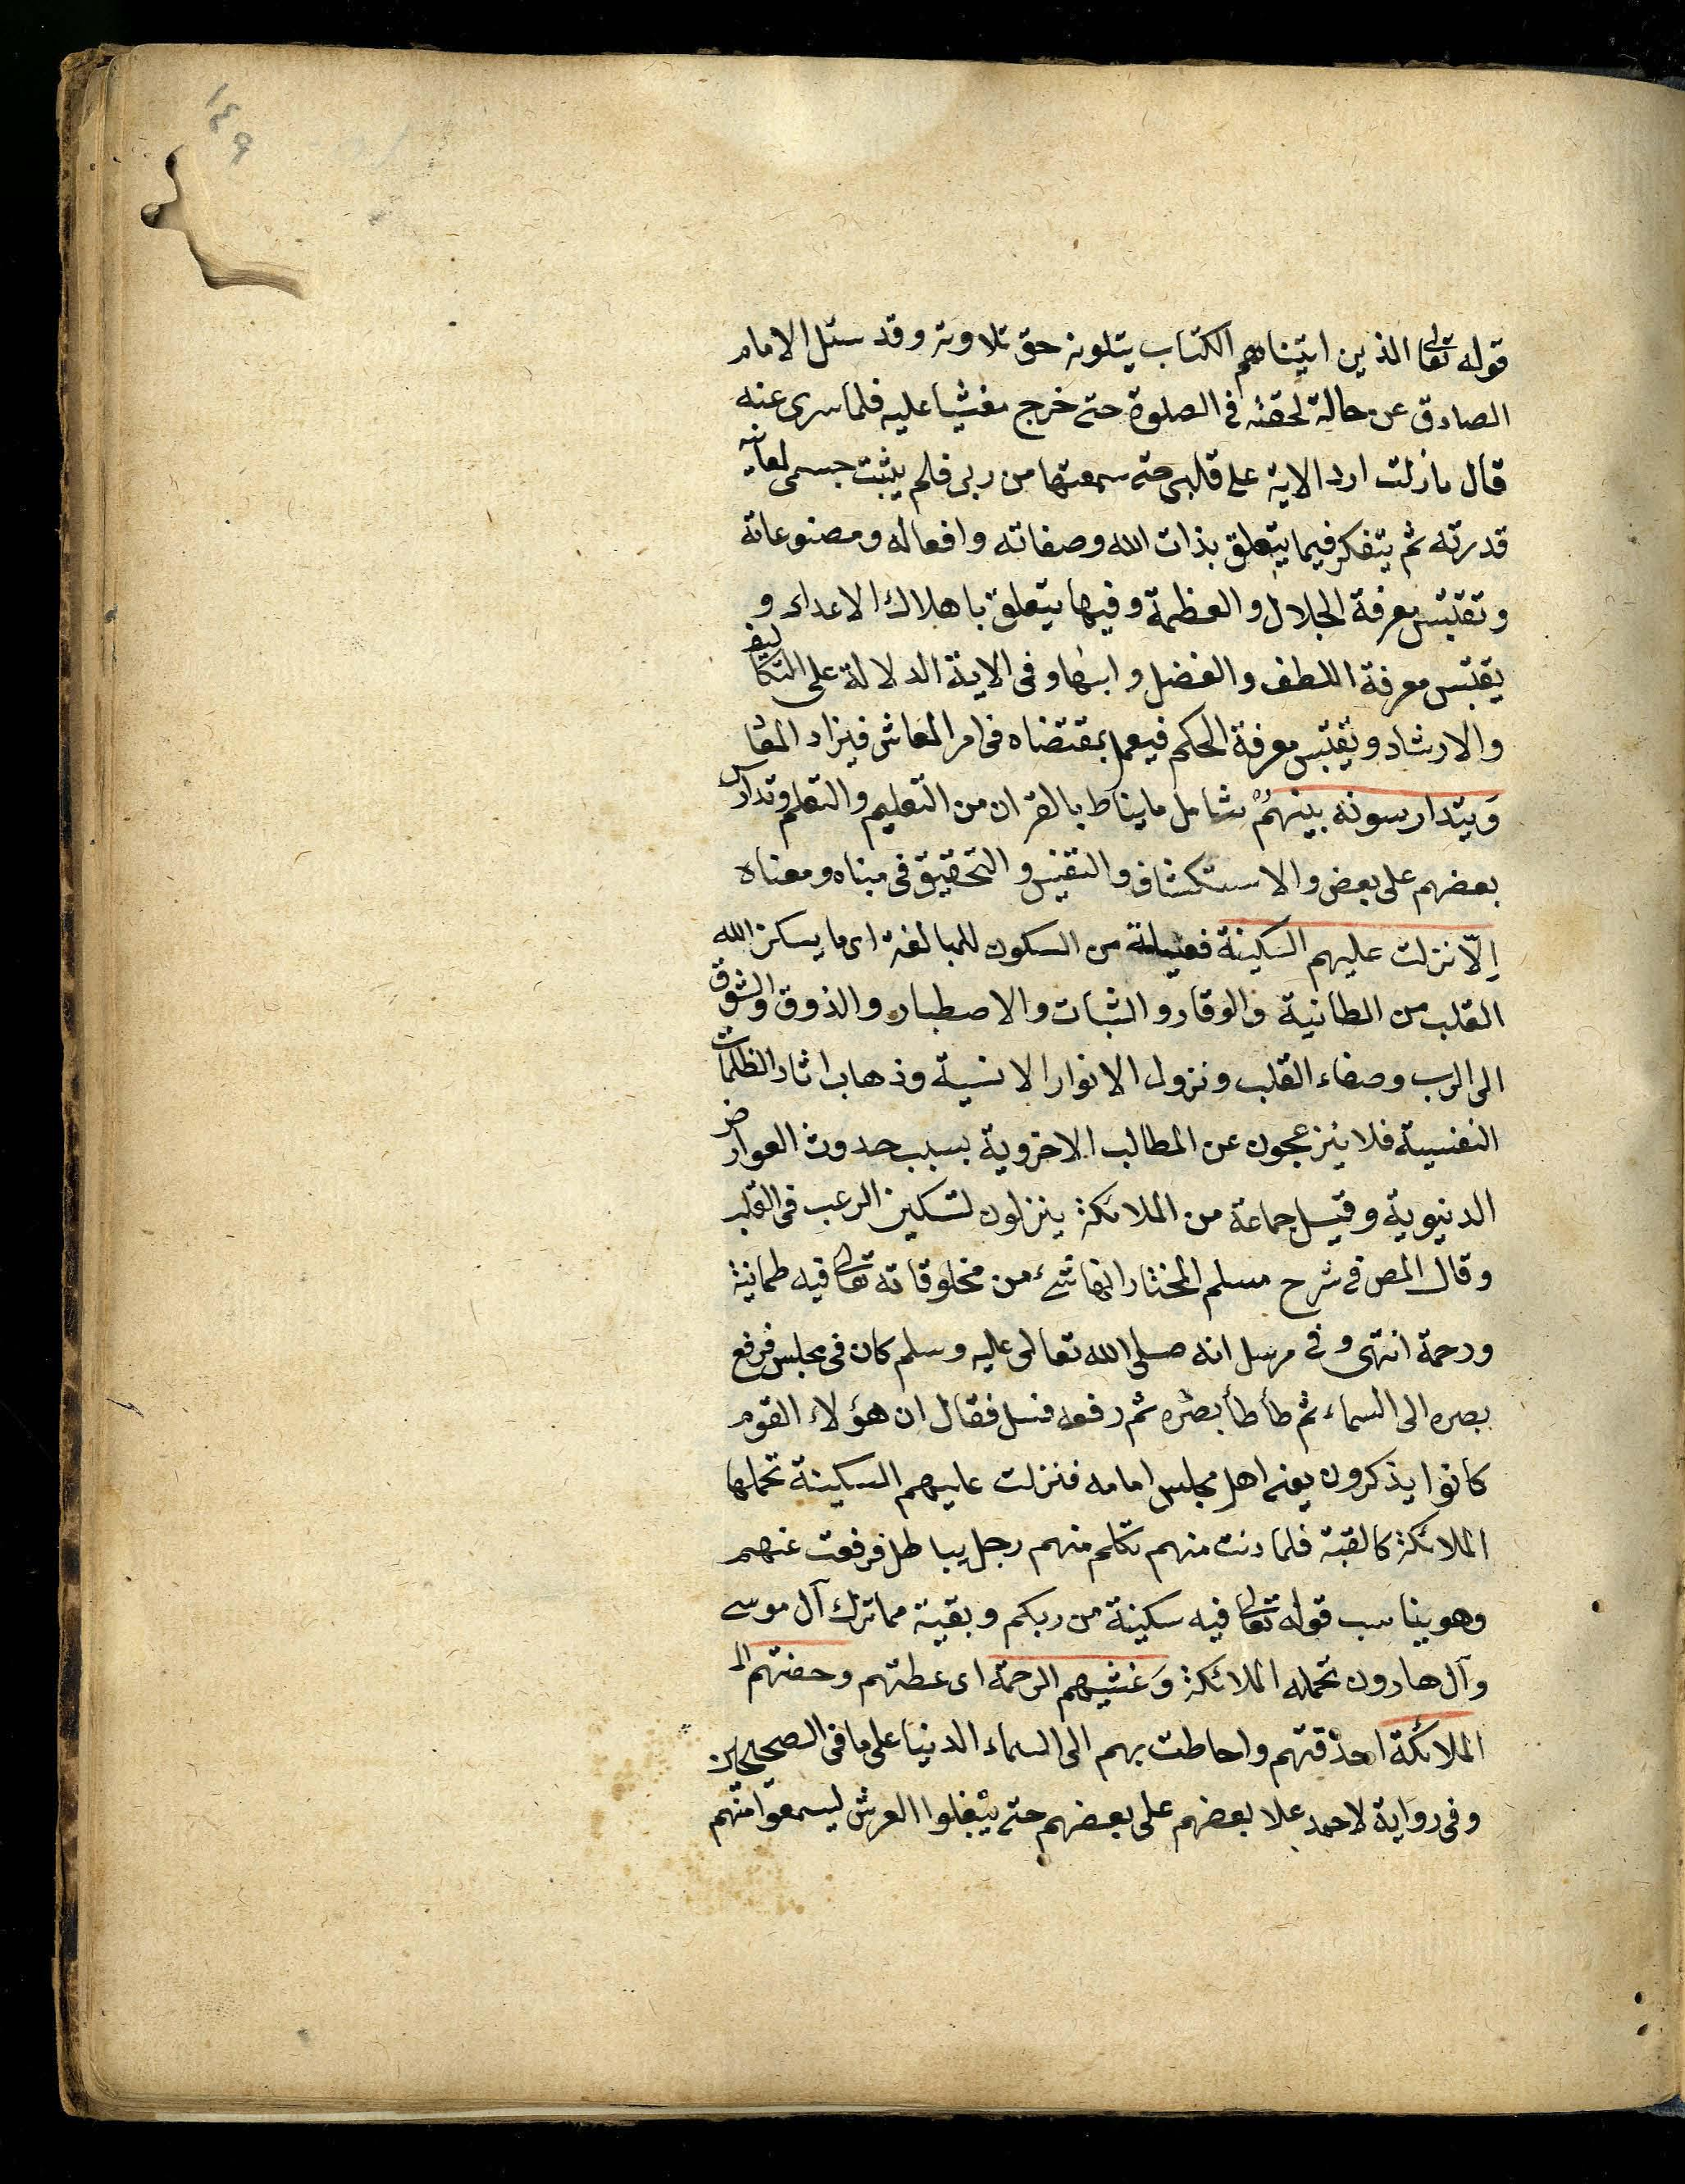 ١٤٩
قوله تعالى الذين اتيناهم الكتاب يتلونه حق تلاوته وقد سئل الامام
الصادق عن حالة لحقته في الصلوة حتى خرج مغشيا عليه فلما سرى عنه
قال مازلت اردد الاية على قلبي حتى سمعتها من ربي فلم يثبت جسمى لمعاينه
قدرته ثم يتفكر فيما يتعلق بذات الله وصفاته وافعاله ومصنوعاته
وتقتبس معرفة الجلال والعظمة وفيها يتعلق باهلاك الاعداء و
يقتبس معرفة اللطف والفضل وابنها وفى الاية الدلالة على التكاليف
والارشاد ويقتبس معرفة الحكم فيعمل بمقتضاه فى امر المعاش فيزاد المعا
وَيتدارسونه بينهمْ شامل ما يناط بالقران من التعليم والتعلم وتدارس
بعضهم على بعض والاستكشاف والتفتيش والتحقيق فى مبناه ومعناه
اِلّا نزلت عليهم السكينة فعيلة من السكون للمبالغة اى ما يسكن الله
القلب من الطمانية والوقار والثبات والاصطبار والذوق والشوق
الى الرب وصفاء القلب ونزول الانوار الانسية وذهاب اثار الظلمات
النفسية فلا ينزعجون عن المطالب الاخروية بسبب حدوث العوارض
الدنيوية وقيل جماعة من الملائكة ينزلون لتسكين الرعب فى القلب
وقال المص فى شرح مسلم المختار انها شىء من مخلوقاته تعالى فيه طمانية
ورحمة انتهى وفى مرسل انه صلى الله تعالى عليه وسلم كان فى مجلس فرفع
بصره الى السماء ثم طأطأ بصره ثم رفعه فسئل فقال ان هؤلاء القوم
كانوا يذكرون يعنى اهل مجلس امامه فنزلت عليهم السكينة تحملها
الملائكة كالقبة فلما دنت منهم تكلم منهم رجل بباطل فرفعت عنهم
وهو يناسب قوله تعالى فيه سكينة من ربكم وبقية مما ترك آل موسى
وآل هارون تحمله الملائكة وَغشيهم الرحمة اى غطتهم وحفتهم الم
الملائكة احدقتهم واحاطت بهم الى السماء الدنيا على ما فى الصحيحين
وفى رواية لاحمد علا بعضهم على بعضهم حتى يبلغوا العرش ليسمعوا منهم